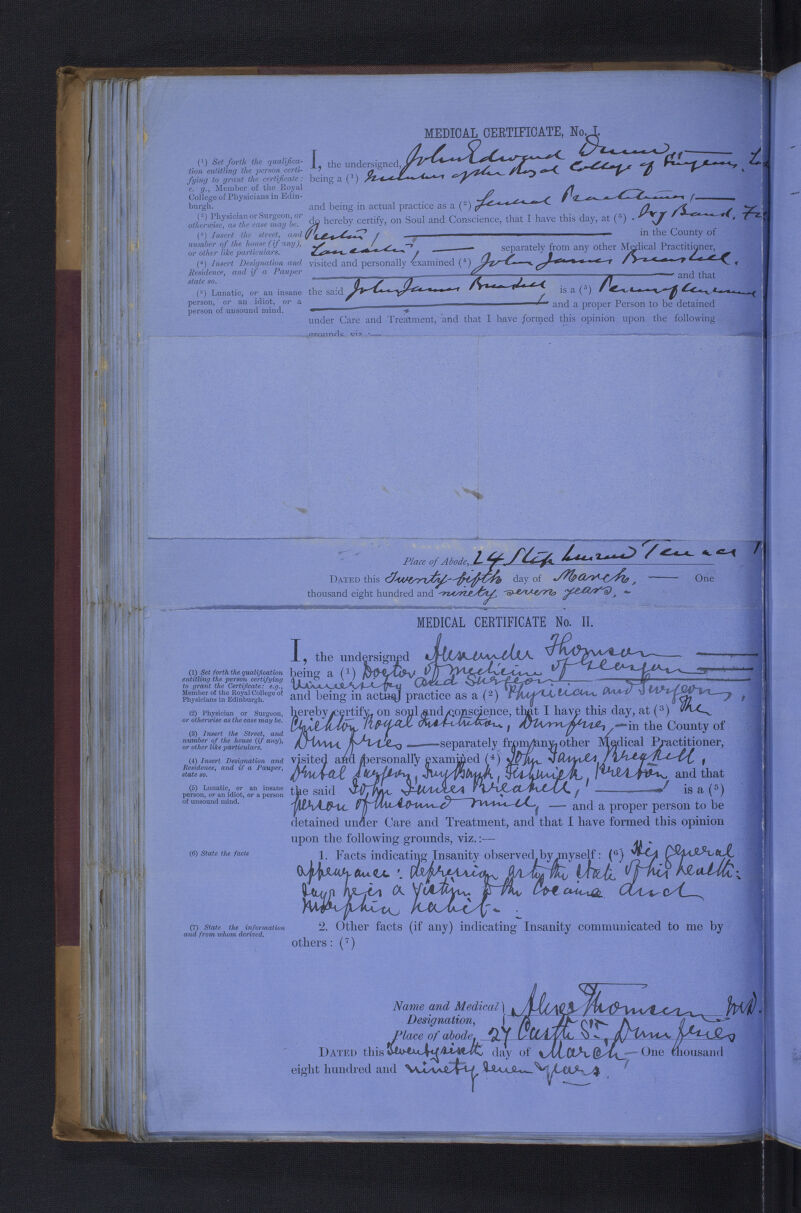 MEDICAL CERTIFICATE, No. I.
(1) Set forth the qualifica-
tion entitling the person certi-
fying to grant the certificate:
e. g., Member of the Royal
College of Physicians in Edin-
burgh.
(2) Physician or Surgeon, or
otherwise, as the case may be.
(3) Insert the street, and
number of the house (if any),
or other like particulars.
(4) Insert Designation and
Residence, and if a Pauper
state so.
(5) Lunatic, or an insane
person, or an idiot, or a
person of unsound mind.
I, the undersigned, John Edward Dunn
being a (1) Member of the Royal College of Surgeons,
and being in actual practice as a (2) General Practitioner,
do hereby certify, on Soul and Conscience, that I have this day, at (3)
Preston, in the County of
Lancaster, separately from any other Medical Practitioner,
visited and personally examined (4) John James Breakell,
and that
the said John James Breakell is a (5) Person of Unsound
and a proper Person to be detained
under Care and Treatment, and that I have formed this opinion upon the following
grounds, viz.:—
Place of Abode, 24
DATED this Twenty-fifth day of March, — One
thousand eight hundred and ninety seven years.
MEDICAL CERTIFICATE No. II.
(1) Set forth the qualification
entitling the person certifying
to grant the Certificate: e.g.,
Member of the Royal College of
Physicians in Edinburgh.
(2) Physician or Surgeon,
or otherwise as the case may be.
(3) Insert the Street, and
number of the house (if any),
or other like particulars.
(4) Insert Designation and
Residence, and if a Pauper,
state so.
(5) Lunatic, or an insane
person, or an idiot, or a person
of unsound mind.
I, the undersigned Alexander Thomson
being a (1) Doctor of Medicine of Glasgow
University and Surgeon
and being in actual practice as a (2) Physician and Surgeon,
hereby certify, on soul and conscience, that I have this day, at (3) The
Crichton Royal Institution, Dumfries, — in the County of
Dumfries — separately from any other Medical Practitioner,
visited and personally examined (4) John James Breakell,
Dental Surgeon, Fishwick, Preston, and that
the said John James Breakell, — is a (5)
person of unsound mind, — and a proper person to be
detained under Care and Treatment, and that I have formed this opinion
upon the following grounds, viz.:—
(6) State the facts
1. Facts indicating Insanity observed by myself: (6) His general
appearance: depression as to the state of his health:
says he is a victim to the Cocaine and
morphia habit.
(7) State the information
and from whom derived.
2. Other facts (if any) indicating Insanity communicated to me by
others: (7)
Name and Medical
Designation, Alexr Thomson MD.
Place of abode, 27 Castle St., Dumfries
DATED this Twenty sixth day of March — One thousand
eight hundred and ninety seven years.